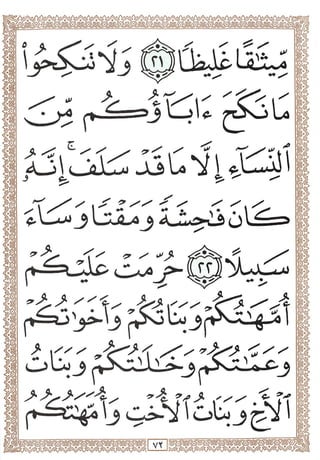 مِّيثَٰقًا غَلِيظًا ٢١ وَلَا تَنكِحُوا۟
مَا نَكَحَ ءَابَآؤُكُم مِّنَ
ٱلنِّسَآءِ إِلَّا مَا قَدْ سَلَفَ ۚ إِنَّهُۥ
كَانَ فَٰحِشَةً وَمَقْتًا وَسَآءَ
سَبِيلًا ٢٢ حُرِّمَتْ عَلَيْكُمْ
أُمَّهَٰتُكُمْ وَبَنَاتُكُمْ وَأَخَوَٰتُكُمْ
وَعَمَّٰتُكُمْ وَخَٰلَٰتُكُمْ وَبَنَاتُ
ٱلْأَخِ وَبَنَاتُ ٱلْأُخْتِ وَأُمَّهَٰتُكُمُ
٧٢